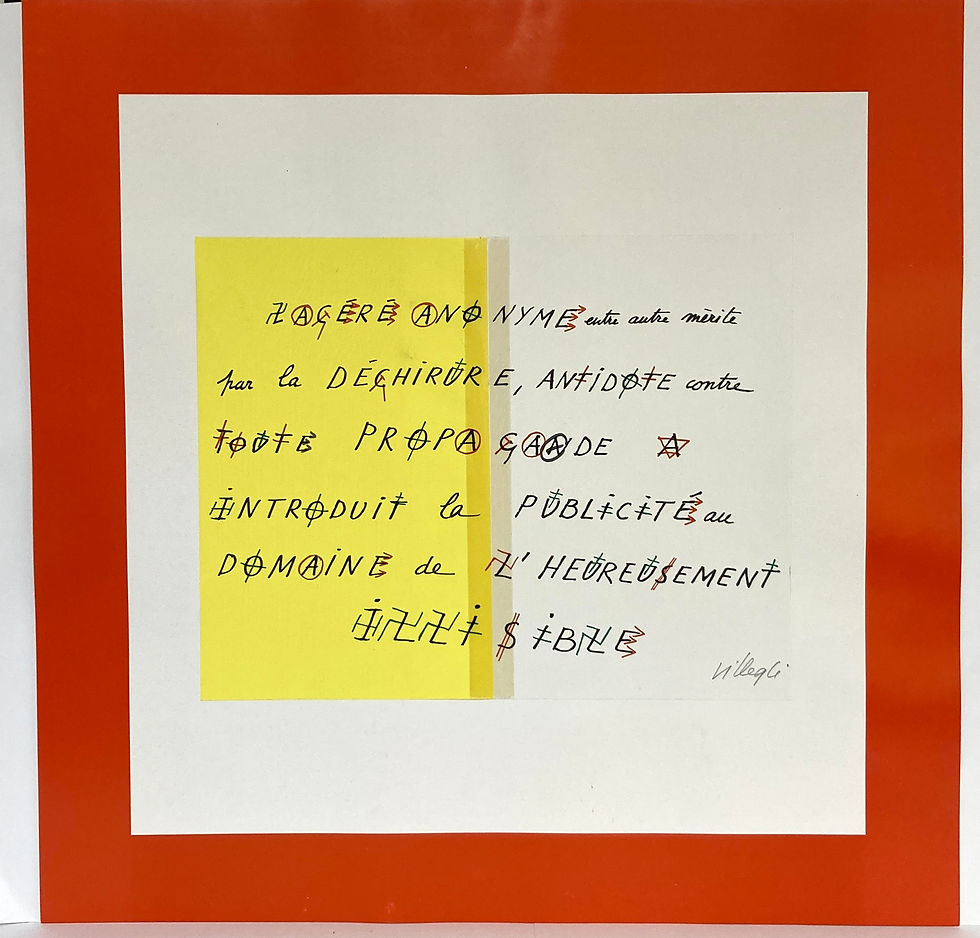 LACÉRÉ ANONYME entre autre mèrite
par la DÉCHIRURE, ANTiDOTE contre
TOUTE PROPAGANDE A
INTRODUiT la PUBLiCiTÉ au
DOMAiNE de L'HEUREUSEMENT
ILLiSiBLE
Villeglé